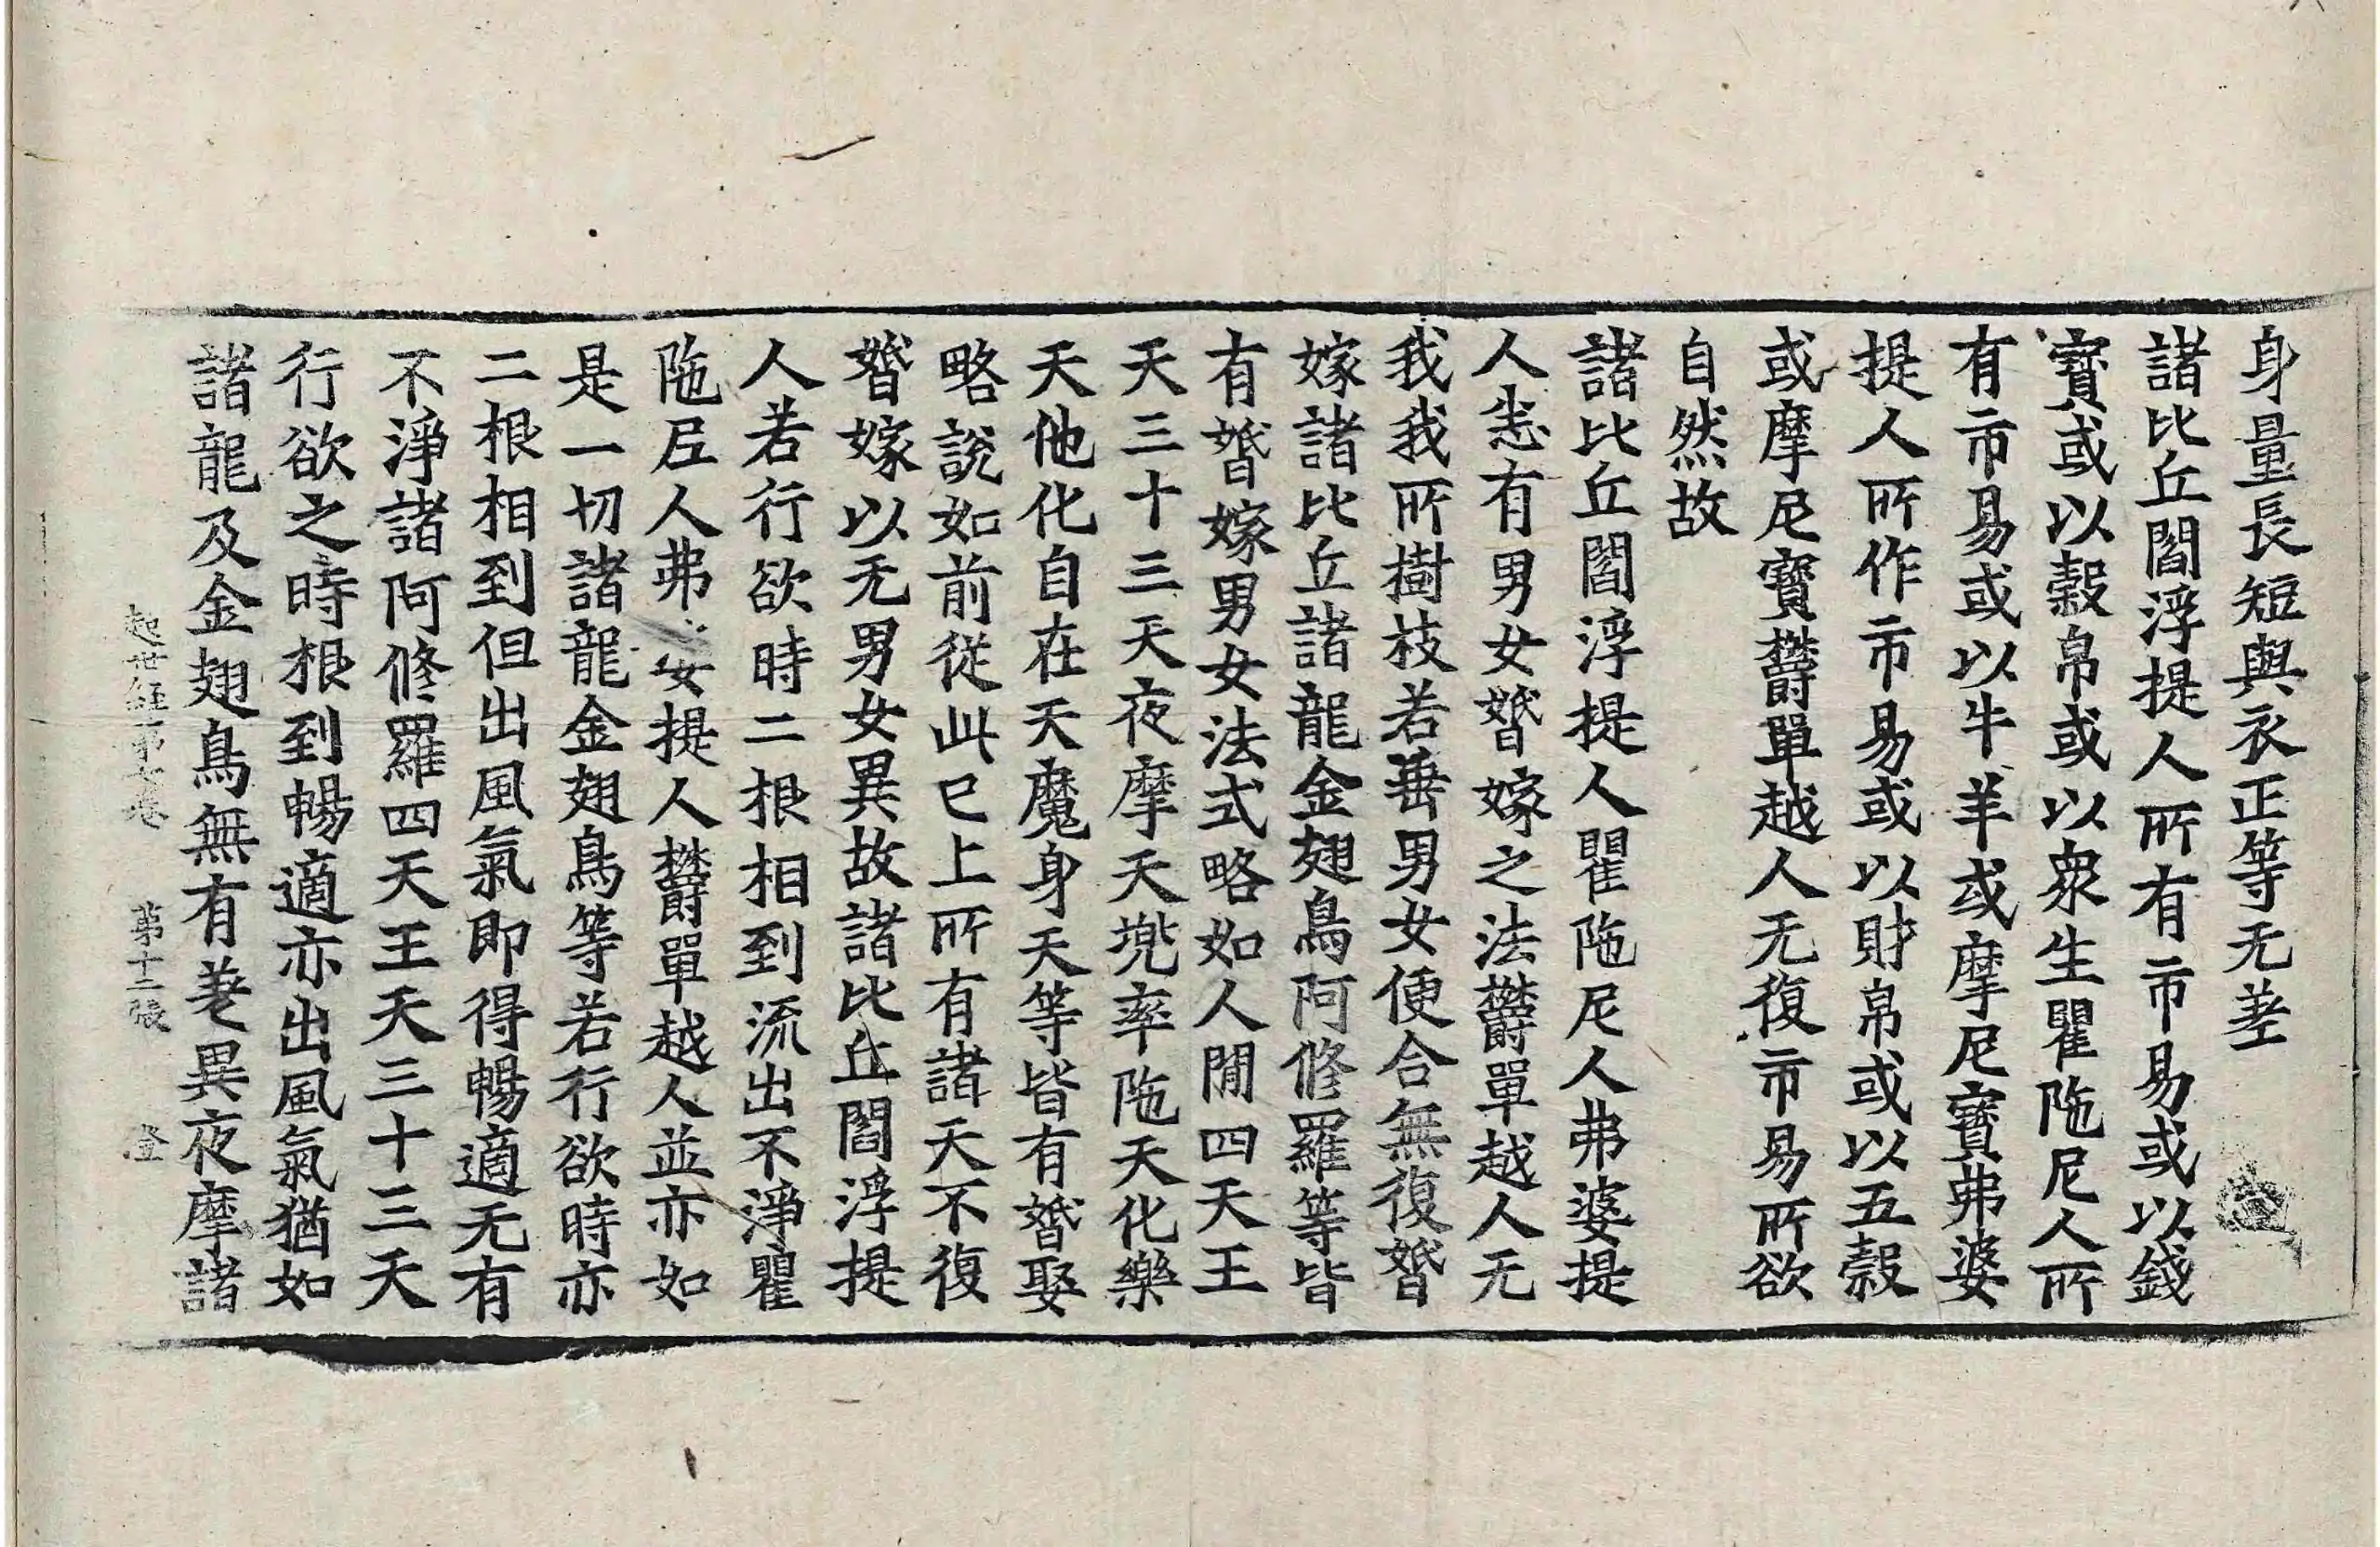 身量長短與衣正等无差
諸比丘閻浮提人所有市易或以錢
寶或以穀帛或以衆生瞿陁尼人所
有市易或以牛羊或摩尼寶弗婆
提人所作市易或以財帛或以五穀
或摩尼寶欝單越人无復市易所欲
自然故
諸比丘閻浮提人瞿陁尼人弗婆提
人悉有男女婚嫁之法欝單越人无
我我所樹枝若垂男女便合無復婚
嫁諸比丘諸龍金翅鳥阿修羅等皆
有婚嫁男女法式略如人間四天王
天三十三天夜摩天兠率陁天化樂
天他化自在天魔身天等皆有婚娶
略說如前從此已上所有諸天不復
婚嫁以无男女異故諸比丘閻浮提
人若行欲時二根相到流出不淨瞿
陁尼人弗婆提人欝單越人並亦如
是一切諸龍金翅鳥等若行欲時亦
二根相到但出風氣即得暢適无有
不淨諸阿修羅四天王天三十三天
行欲之時根到暢適亦出風氣猶如
諸龍及金翅鳥無有差異夜摩諸
起世經第七卷 第十二張